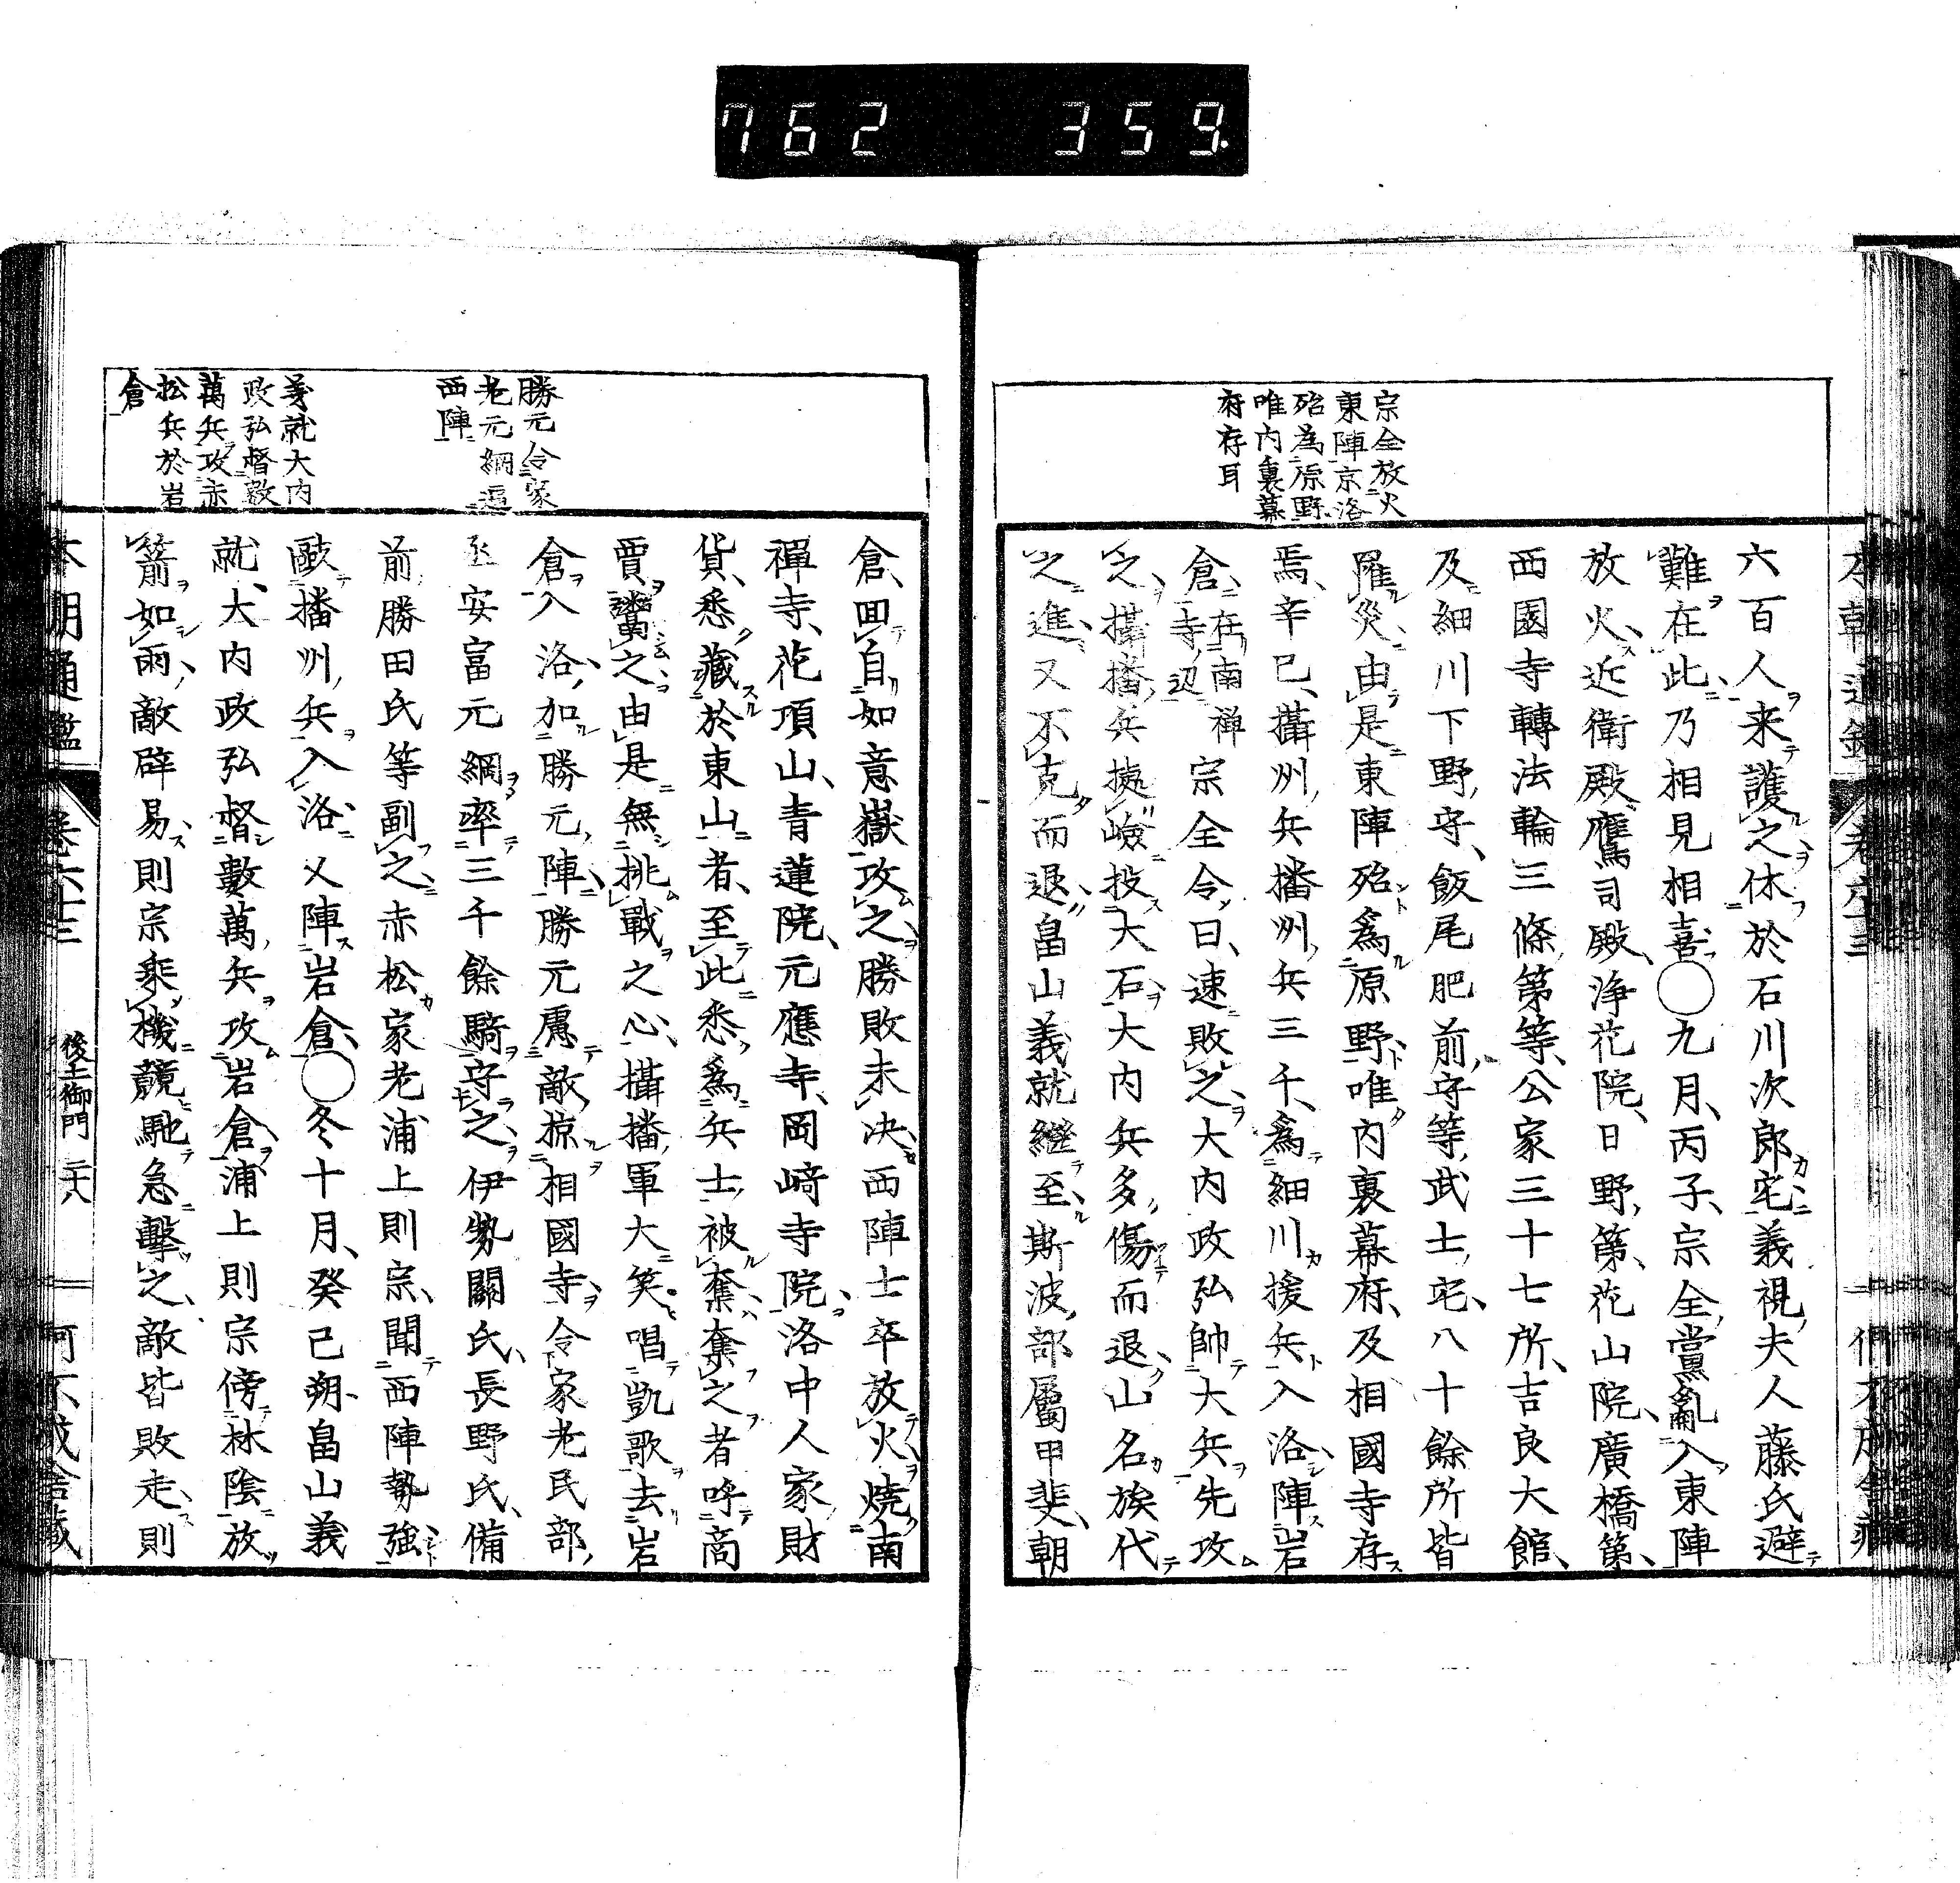 762 359.
宗全放火
東陣京洛
殆為原野
唯内裏幕
府存耳
六百人来護之休於石川次郎宅義視夫人藤氏避
難在此乃相見相喜〇九月丙子宗全黨亂入東陣
放火近衛殿鷹司殿浄花院日野第花山院廣橋第
西園寺轉法輪三條第等公家三十七所吉良大館
及細川下野守飯尾肥前守等武士宅八十餘所皆
罹災由是東陣殆為原野唯内裏幕府及相國寺存
焉辛巳攝州兵播州兵三千為細川援兵入洛陣岩
倉在南禅寺辺宗全令曰速敗之大内政弘帥大兵先攻
之攝播兵據嶮投大石大内兵多傷而退山名族代
之進又不克而退畠山義就継至斯波部屬甲斐朝
勝元令家
老元綱逼
西陣
義就大内
政弘督數
萬兵攻赤
松兵於岩
倉
倉回自如意嶽攻之勝敗未決西陣士卒放火燒南
禪寺花頂山青蓮院元應寺岡﨑寺院洛中人家財
貨悉藏於東山者至此悉為兵士被奪奪之者呼商
賈鬻之由是無挑戰之心攝播軍大笑唱凱歌去岩
倉入洛加勝元陣勝元慮敵掠相國寺令家老民部
丞安富元綱率三千餘騎守之伊勢關氏長野氏備
前勝田氏等副之赤松家老浦上則宗聞西陣勢強
敺播州兵入洛乂陣岩倉〇冬十月癸己朔畠山義
就大内政弘督數萬兵攻岩倉浦上則宗傍林陰放
箭如雨敵辟易則宗乘機競馳急擊之敵皆敗走則
本朝通鑑 卷六十三 後土御門 二十八